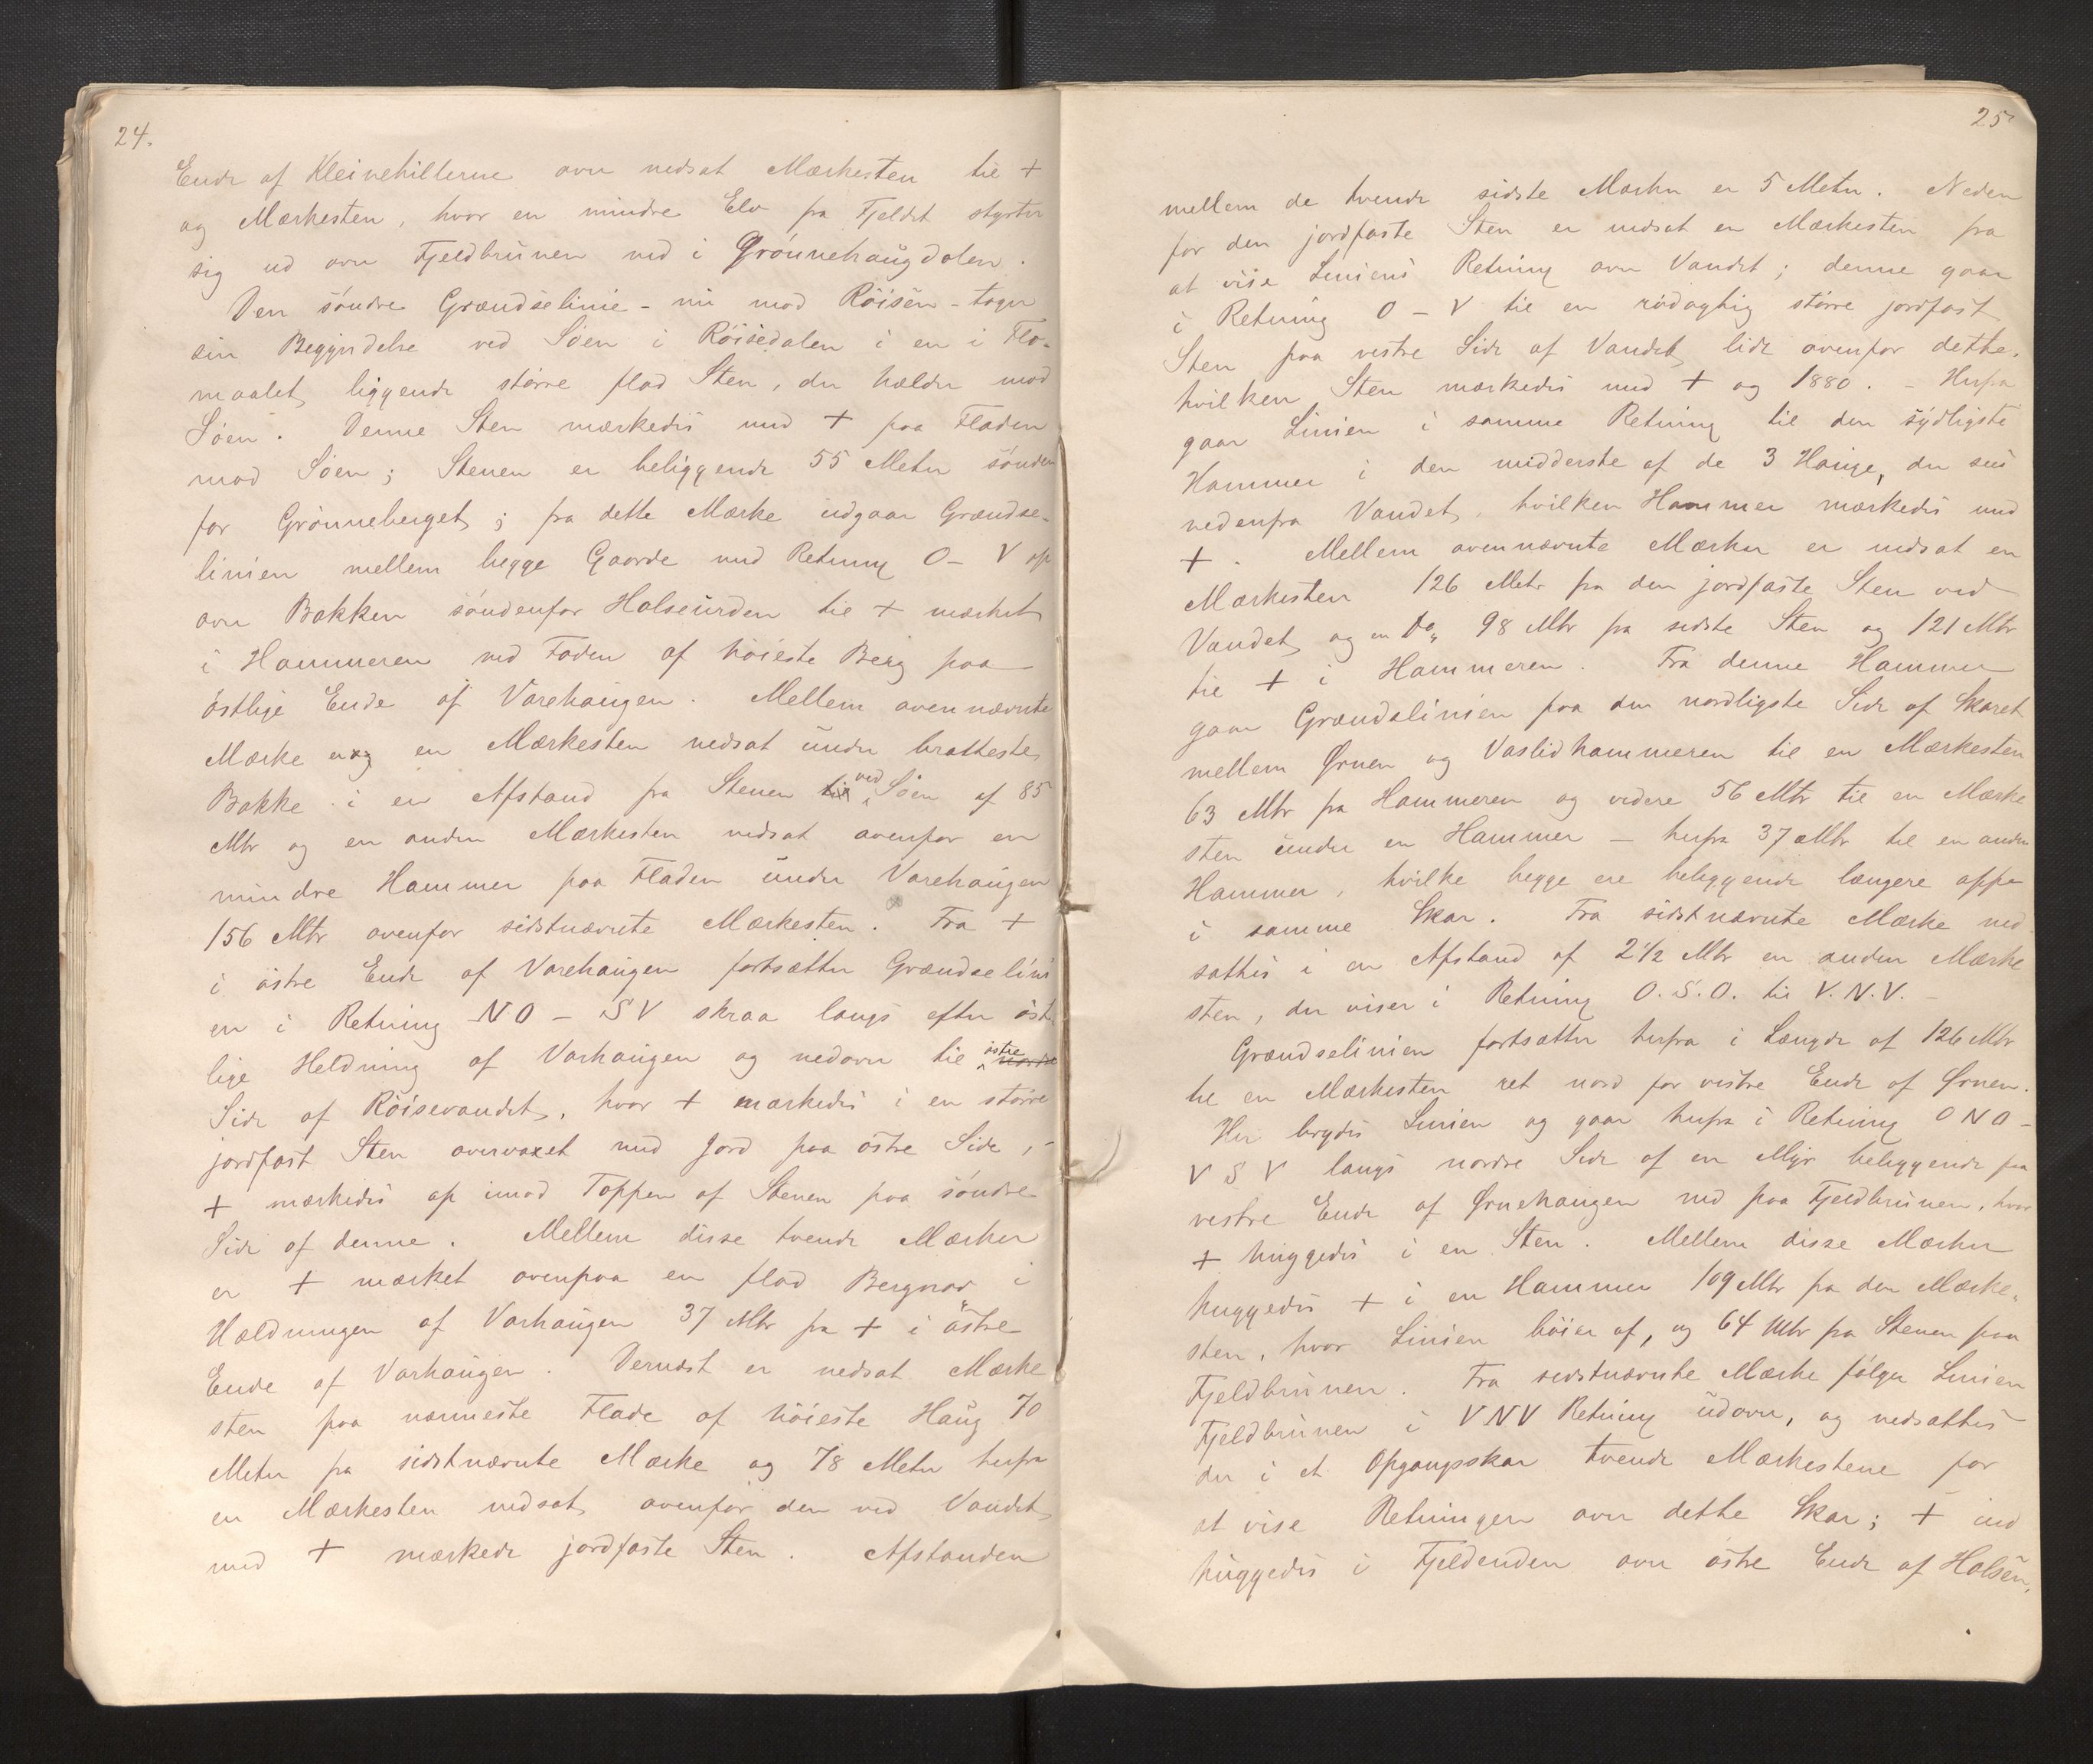 24.
Ende af Kleivehillerne over nedsat Mærkesten til +
og Mærkesten, hvor en mindre Elv fra Fjeldet styrter
sig ud over Fjeldbrunen ned i Grönnehaugdalen.
Den söndre Grændselinie - nu mod Röisen - tager
sin Begyndelse ved Söen i Röisedalen i en i Flo-
maalet liggende större flad Sten, der helder mod
Söen. Denne Sten mærkedes med + paa Fladen
mod Söen; Stenen er beliggende 55 Meter sönden
for Grönneberget; fra dette Mærke udgaar Grændse-
linien mellem begge Gaarde med Retning O - V op
over Bakken söndenfor Halseurden til + mærket
i Hammeren ved Foden af höieste Berg paa
östlige Ende af Varehaugen. Mellem ovennævnte
Mærke og en Mærkesten nedsat under bratteste
Bakke i en Afstand fra Stenen ved Söen af 85
Mtr og en anden Mærkesten nedsat ovenfor en
mindre Hammer paa Fladen under Varehaugen
156 Mtr ovenfor sidstnævnte Mærkesten. Fra +
i östre Ende af Varehaugen fortsætter Grændselini
en i Retning NO - SV skraa langs efter öst-
lige Heldning af Varhaugen og nedover til östre
Side af Röisevandet, hvor + mærkedes i en större
jordfast Sten overvoxet med Jord paa östre Side, -
+ mærkedes op imod Toppen af Stenen paa söndre
Side af denne. Mellem disse tvende Mærker
er + mærket ovenpaa en flad Bergnov i
Hældningen af Varhaugen 37 Mtr fra + i östre
Ende af Varhaugen. Dernæst er nedsat Mærke
sten paa nærmeste Flade af höieste Haug 70
Meter fra sidstnævnte Mærke og 78 Meter herfra
en Mærkesten nedsat ovenfor den ved Vandet
med + mærkede jordfaste Sten. Afstanden
25
mellem de tvende sidste Mærker er 5 Meter. Neden
for den jordfaste Sten er nedsat en Mærkesten fra
at vise Liniens Retning over Vandet; denne gaar
i Retning O - V til en rödagtig större jordfast
Sten paa vestre Side af Vandet lidt ovenfor dette,
hvilken Sten mærkedes med + og 1880. - Herfra
gaar Linien i samme Retning til den sydligste
Hammer i den midderste af de 3 Hauge, der sees
nedenfra Vandet, hvilken Hammer mærkedes med
+. Mellem ovennævnte Mærker er nedsat en
Mærkesten 126 Metr fra den jordfaste Sten ved
Vandet og en do 98 Mtr fra sidste Sten og 121 Mtr
til + i Hammeren. Fra denne Hammer
gaar Grændselinien paa den nordligste Side af Skaret
mellem Ørnen og Vaslidhammeren til en Mærkesten
63 Mtr fra Hammeren og videre 56 Mtr til en Mærke
sten under en Hammer - herfra 37 Mtr til en anden
Hammer, hvilke begge ere beliggende længere oppe
i samme Skar. Fra sidstnævnte Mærke ned
sattes i en Afstand af 2 1/2 Mtr en anden Mærke
sten, der viser i Retning O.S.O. til V.N.V. -
Grændselinien fortsætter herfra i Længde af 126 Mtr
til en Mærkesten ret nord for vestre Ende af Ørnen.
Her brydes Linien og gaar herfra i Retning ONO -
VSV langs nordre Side af en Myr beliggende paa
vestre Ende af Ørnehaugen ned paa Fjeldbrunen, hvor
+ huggedes i en Sten. Mellem disse Mærker
huggedes + i en Hammer 109 Mtr fra den Mærke-
sten, hvor Linien böier af, og 64 Mtr fra Stenen paa
Fjeldbrunen. Fra sidstnævnte Mærke fölger Linien
Fjeldbrunen i VNV Retning udover, og nedsattes
der i et Opgangsskar tvende Mærkestene for
at vise Retningen over dette Skar; + ind
huggedes i Fjeldenden over östre Ende af Halsen,